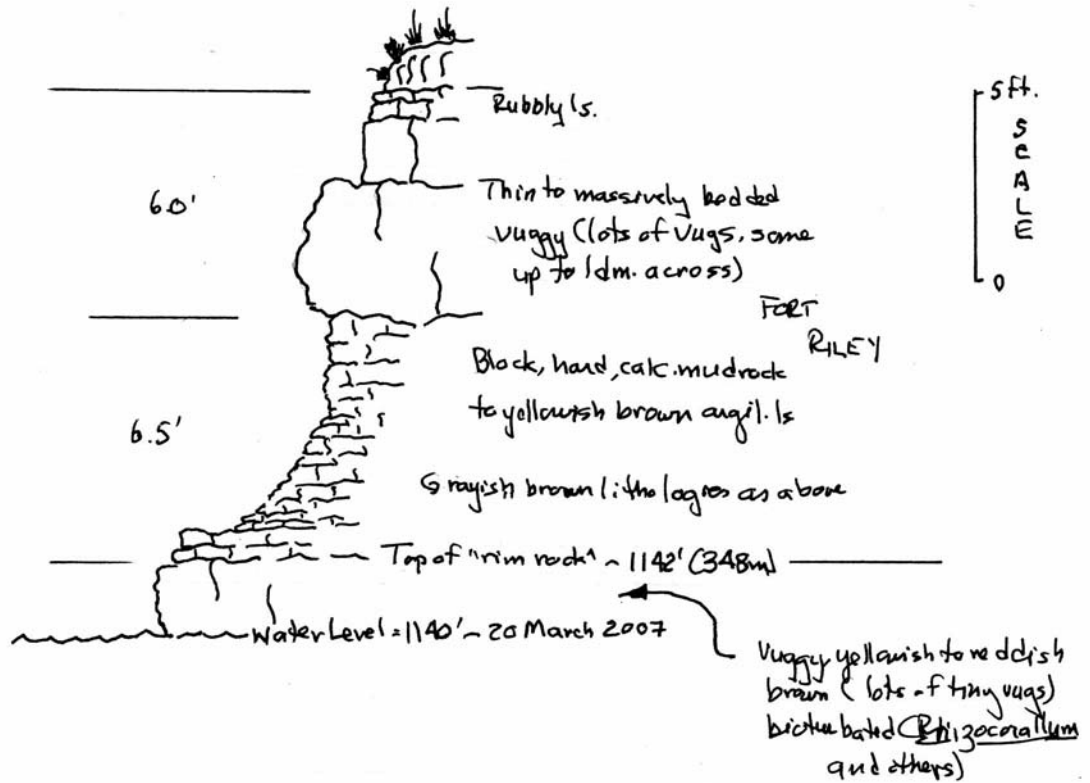 Rubbly ls.
5 ft.
SCALE
0
6.0'
Thin to massively bedded
vuggy (lots of vugs, some
up to 1 dm. across)
FORT
RILEY
Block, hard, calc. mudrock
to yellowish brown argil. ls
6.5'
Grayish brown lithologies as above
Top of "rim rock" ~ 1142' (348m)
Water Level = 1140' ~ 20 March 2007
Vuggy yellowish to reddish
brown (lots of tiny vugs)
bioturbated (Rhizocorallum
and others)